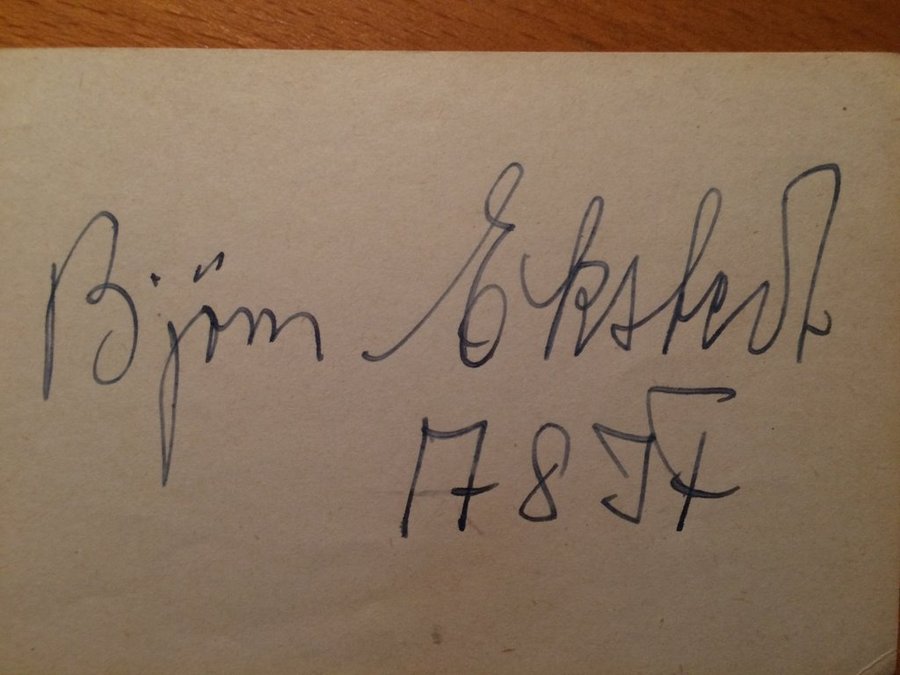 Björn Ekstedt
17 8